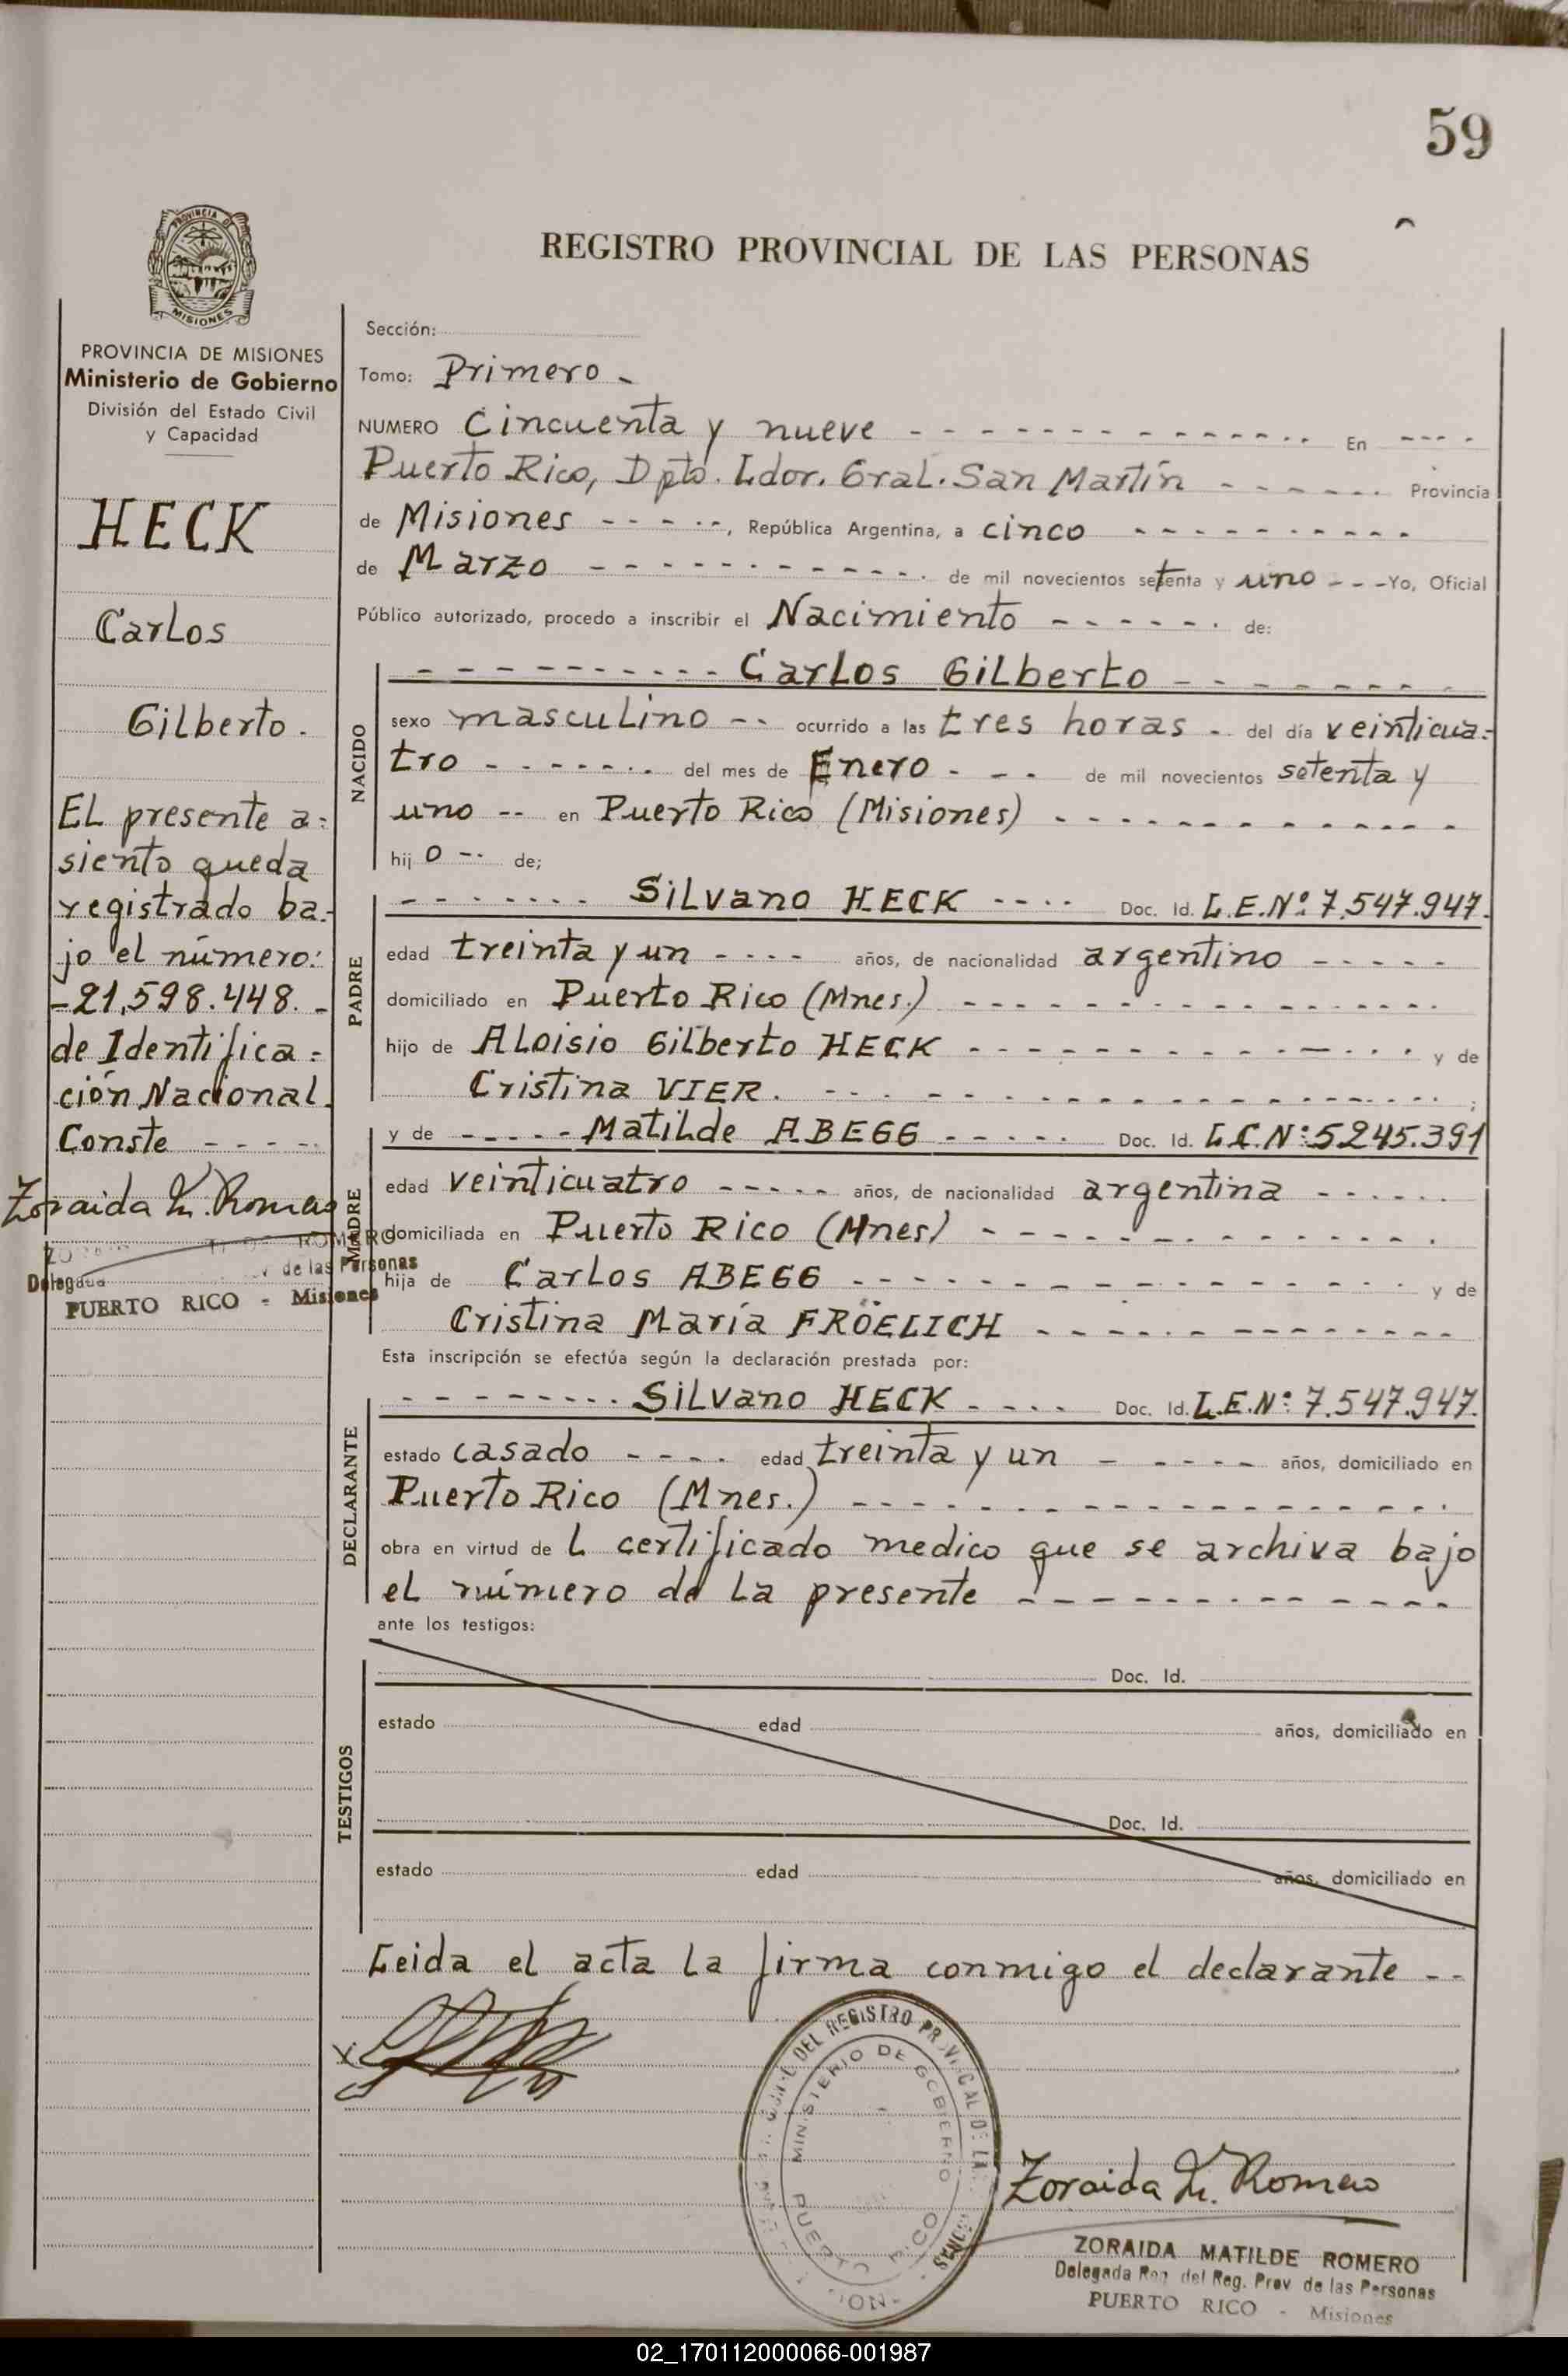 59
REGISTRO PROVINCIAL DE LAS PERSONAS
PROVINCIA DE
MISIONES
PROVINCIA DE MISIONES
Ministerio de Gobierno
División del Estado Civil
y Capacidad
HECK
Carlos
Gilberto.
El presente a=
siento queda
registrado ba-
jo el número:
-21.598.448.-
de Identifica=
ción Nacional.
Conste - - - -
Zoraida M. Romero
ROMERO
Delegada de las Personas
PUERTO RICO - Misiones
Sección:
Tomo: Primero -
NUMERO Cincuenta y nueve - - - - En - - - -
Puerto Rico, Dpto. Ldor. Gral. San Martín - - - - Provincia
de Misiones - - - -, República Argentina, a cinco - - - -
de Marzo - - - - de mil novecientos setenta y uno - - - Yo, Oficial
Público autorizado, procedo a inscribir el Nacimiento - - - - de:
NACIDO
- - - - Carlos Gilberto - - - -
sexo masculino - - ocurrido a las tres horas - - del día veinticua=
tro - - - - del mes de Enero - - - de mil novecientos setenta y
uno - - en Puerto Rico (Misiones) - - - -
hij o - - de;
PADRE
- - - - Silvano HECK - - - - Doc. Id. L.E.Nº 7.547.947.
edad treinta y un - - - - años, de nacionalidad argentino - - - -
domiciliado en Puerto Rico (Mnes.) - - - -
hijo de Aloisio Gilberto HECK - - - - y de
Cristina VIER. - - - - ;
MADRE
y de - - - - Matilde ABEGG - - - - Doc. Id. L.C.Nº 5245.391
edad veinticuatro - - - - años, de nacionalidad argentina - - - -
domiciliada en Puerto Rico (Mnes) - - - -
hija de Carlos ABEGG - - - - y de
Cristina María FRÖELICH - - - -
Esta inscripción se efectúa según la declaración prestada por:
DECLARANTE
- - - - Silvano HECK - - - - Doc. Id. L.E.Nº 7.547.947.
estado casado - - - - edad treinta y un - - - - años, domiciliado en
Puerto Rico (Mnes.) - - - -
obra en virtud de l certificado medico que se archiva bajo
el número de la presente - - - -
ante los testigos:
TESTIGOS
Doc. Id.
estado edad años, domiciliado en
Doc. Id.
estado edad años, domiciliado en
Leida el acta la firma conmigo el declarante - -
DEL REGISTRO PROVINCIAL DE LAS
MINISTERIO DE GOBIERNO
PUERTO RICO
Zoraida M. Romero
ZORAIDA MATILDE ROMERO
Delegada Reg. del Reg. Prov. de las Personas
PUERTO RICO - Misiones
02_170112000066-001987